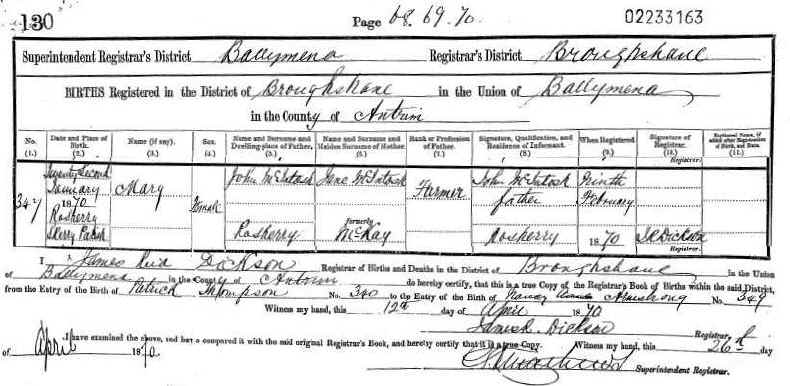 130 Page 68.69.70. 02233163
Superintendent Registrar's District Ballymena Registrar's District Broughshane
BIRTHS Registered in the District of Broughshane in the Union of Ballymena
in the County of Antrim
No. (1.) Date and Place of Birth. (2.) Name (if any). (3.) Sex. (4.) Name and Surname and Dwelling-place of Father. (5.) Name and Surname and Maiden Surname of Mother. (6.) Rank or Profession of Father. (7.) Signature, Qualification, and Residence of Informant. (8.) When Registered. (9.) Signature of Registrar. (10.) Baptismal Name, if added after Registration of Birth, and Date. (11.)
Registrar.
347 Twenty Second January 1870 Roskerry Skerry Parish Mary Female John McIntosh Roskerry Jane McIntosh formerly McKay Farmer John McIntosh father Roskerry Ninth February 1870 J R Dickson Registrar.
I James Reid Dickson Registrar of Births and Deaths in the District of Broughshane in the Union
of Ballymena in the County of Antrim do hereby certify, that this is a true Copy of the Registrar's Book of Births within the said District,
from the Entry of the Birth of Patrick Thompson No. 340 to the Entry of the Birth of Nancy Armstrong No. 349
Witness my hand, this 12th day of April 1870
James R. Dickson Registrar.
I have examined the above, and have compared it with the said original Registrar's Book, and hereby certify that it is a true Copy. Witness my hand, this 26th day
of April 1870 Superintendent Registrar.